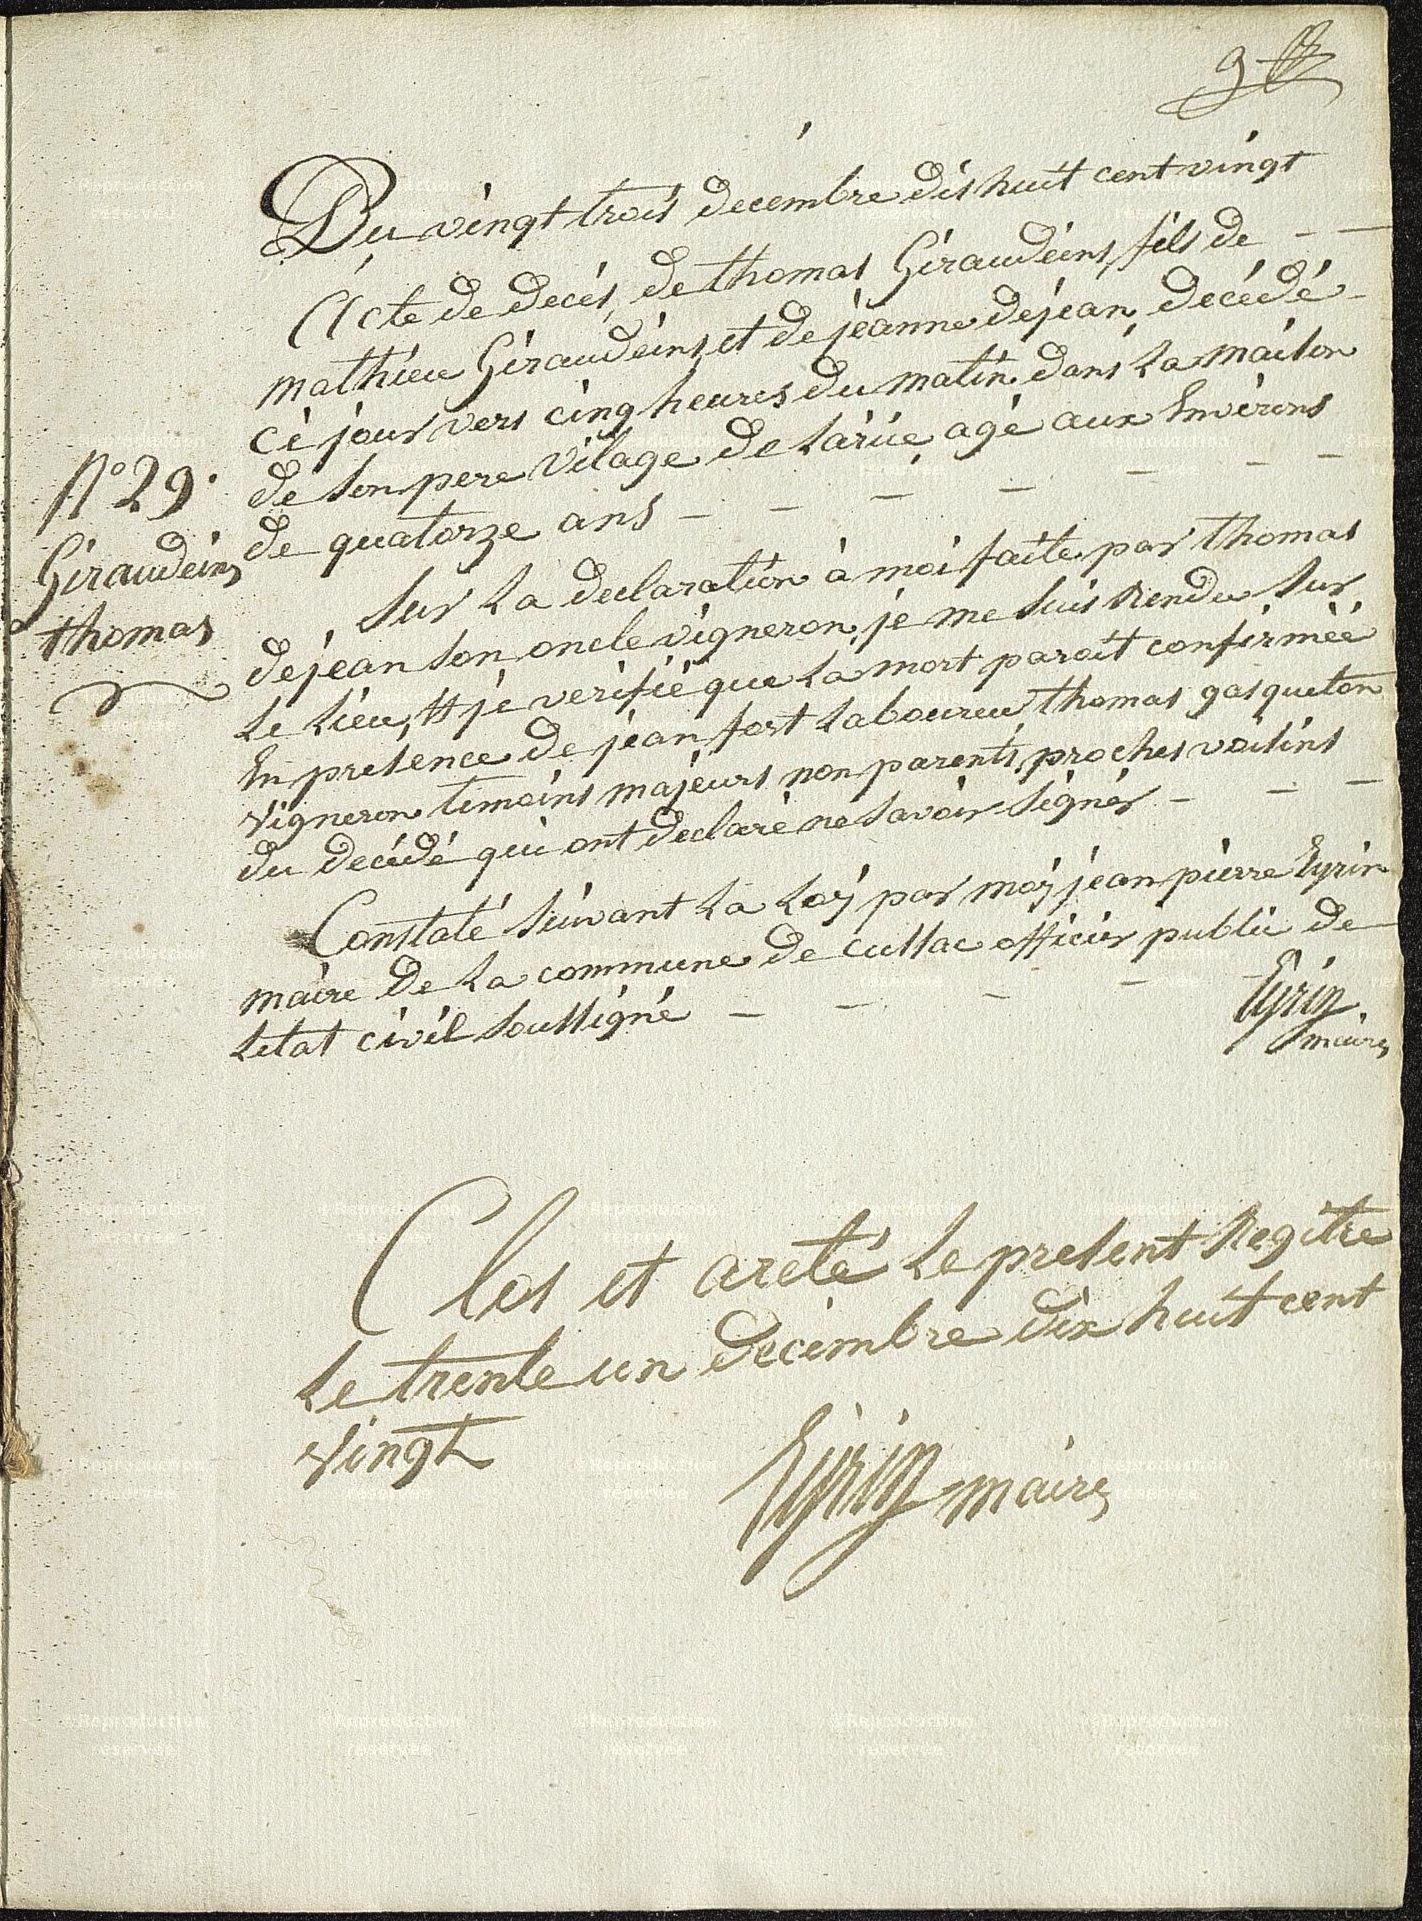 9
Du vingt trois decembre dis huit cent vingt
Acte de decés, de thomas Giraudeins, fils de - -
mathieu Giraudeins, et de jeanne dejean, decédé -
cè jour vers cinq heures du matin dans la maison
de son pere vilage de Larüe, agé aux Environs
de quatorze ans - - - - - - -
N° 29.
Giraudeins
thomas
Sur La declaration à moi faite par thomas
dejean son oncle vigneron, je me suis Rendu Sur
Le Lieu, et jé verifié que La mort paroit confirméé
En presence de jean fort Laboureur thomas gasqueton
vigneron temoins majeurs non parents, proches voisins
du decédé qui ont declaré ne savoir signer - - -
Constaté suivant La Loÿ par moÿ jean pierre Eyrin
maire de La commune de cussac officier public de
Letat civil soussigné - - - - -
Eyrin
maire
Clos et areté Le present Regitre
Le trente un decembre dix huit cent
vingt
Eyrin maire
Reproduction
réservée